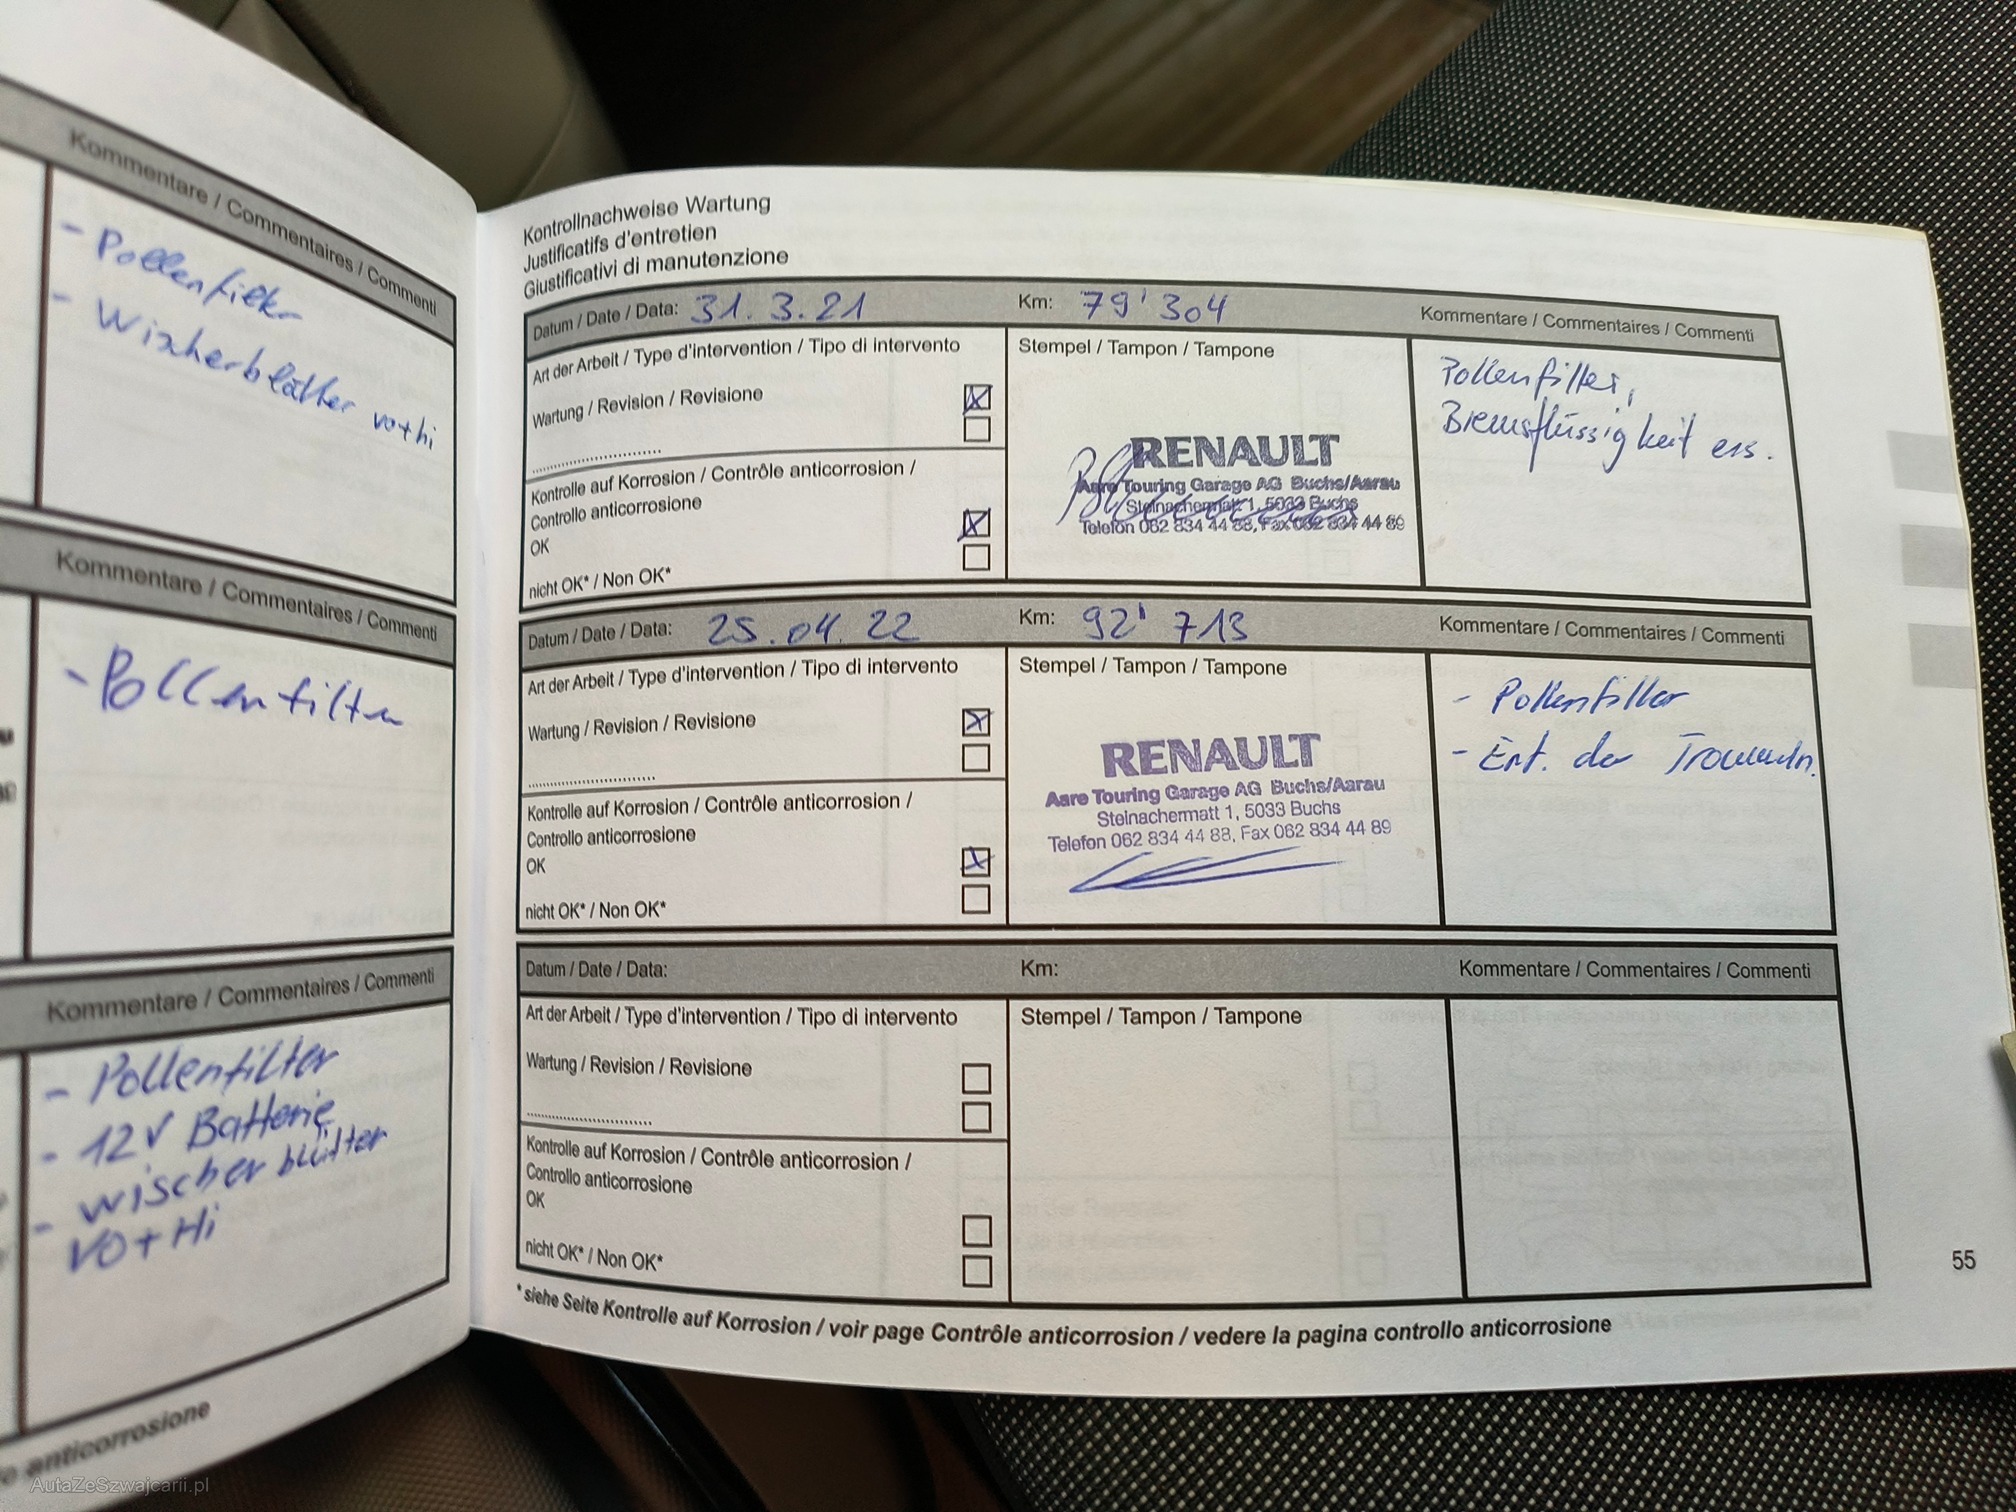 Kommentare / Commentaires / Commenti
- Pollenfilter
- Wischerblätter vo+hi
Kommentare / Commentaires / Commenti
- Pollenfilter
Kommentare / Commentaires / Commenti
- Pollenfilter
- 12V Batterie
- wischer blätter
VO+Hi
anticorrosione
Kontrollnachweise Wartung
Justificatifs d'entretien
Giustificativi di manutenzione
Datum / Date / Data: 31. 3. 21 Km: 79' 304 Kommentare / Commentaires / Commenti
Art der Arbeit / Type d'intervention / Tipo di intervento
Wartung / Revision / Revisione
Kontrolle auf Korrosion / Contrôle anticorrosion /
Controllo anticorrosione
OK
nicht OK* / Non OK*
Stempel / Tampon / Tampone
RENAULT
Aare Touring Garage AG Buchs/Aarau
Steinachermatt 1, 5033 Buchs
Telefon 062 834 44 88, Fax 062 834 44 89
Pollenfilter,
Bremsflüssigkeit ers.
Datum / Date / Data: 25.04.22 Km: 92' 713 Kommentare / Commentaires / Commenti
Art der Arbeit / Type d'intervention / Tipo di intervento
Wartung / Revision / Revisione
Kontrolle auf Korrosion / Contrôle anticorrosion /
Controllo anticorrosione
OK
nicht OK* / Non OK*
Stempel / Tampon / Tampone
RENAULT
Aare Touring Garage AG Buchs/Aarau
Steinachermatt 1, 5033 Buchs
Telefon 062 834 44 88, Fax 062 834 44 89
- Pollenfilter
- Ent. der Trommeln.
Datum / Date / Data: Km: Kommentare / Commentaires / Commenti
Art der Arbeit / Type d'intervention / Tipo di intervento
Wartung / Revision / Revisione
Kontrolle auf Korrosion / Contrôle anticorrosion /
Controllo anticorrosione
OK
nicht OK* / Non OK*
Stempel / Tampon / Tampone
* siehe Seite Kontrolle auf Korrosion / voir page Contrôle anticorrosion / vedere la pagina controllo anticorrosione
55
AutaZeSzwajcarii.pl